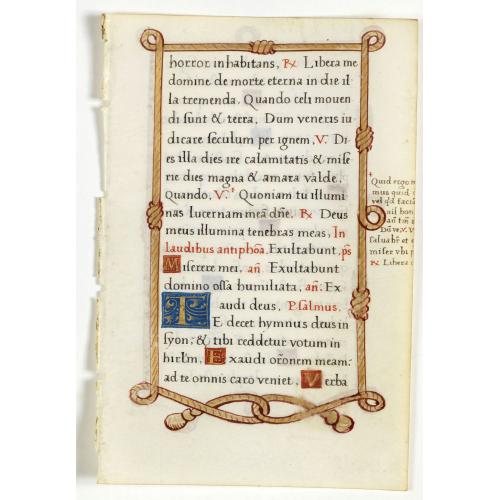 horror inhabitans, ℟ Libera me
domine de morte eterna in die il-
la tremenda. Quando celi mouen
di sunt & terra, Dum veneris iu-
dicare seculum per ignem, ℣. Di
es illa dies ire calamitatis & mise
rie dies magna & amara valde.
Quando, ℣. Quoniam tu illumi
nas lucernam meā dñe. ℟ Deus
meus illumina tenebras meas, In
laudibus antiphōa. Exultabunt, ps
Miserere mei, añ. Exultabunt
domino ossa humiliata, añ. Ex
audi deus, Psalmus.
TE decet hymnus deus in
syon, & tibi reddetur votum in
hirlm̄. Exaudi orōnem meam:
ad te omnis caro veniet, Verba
Quid ergo
mus quid
vel qd
℟ Libera